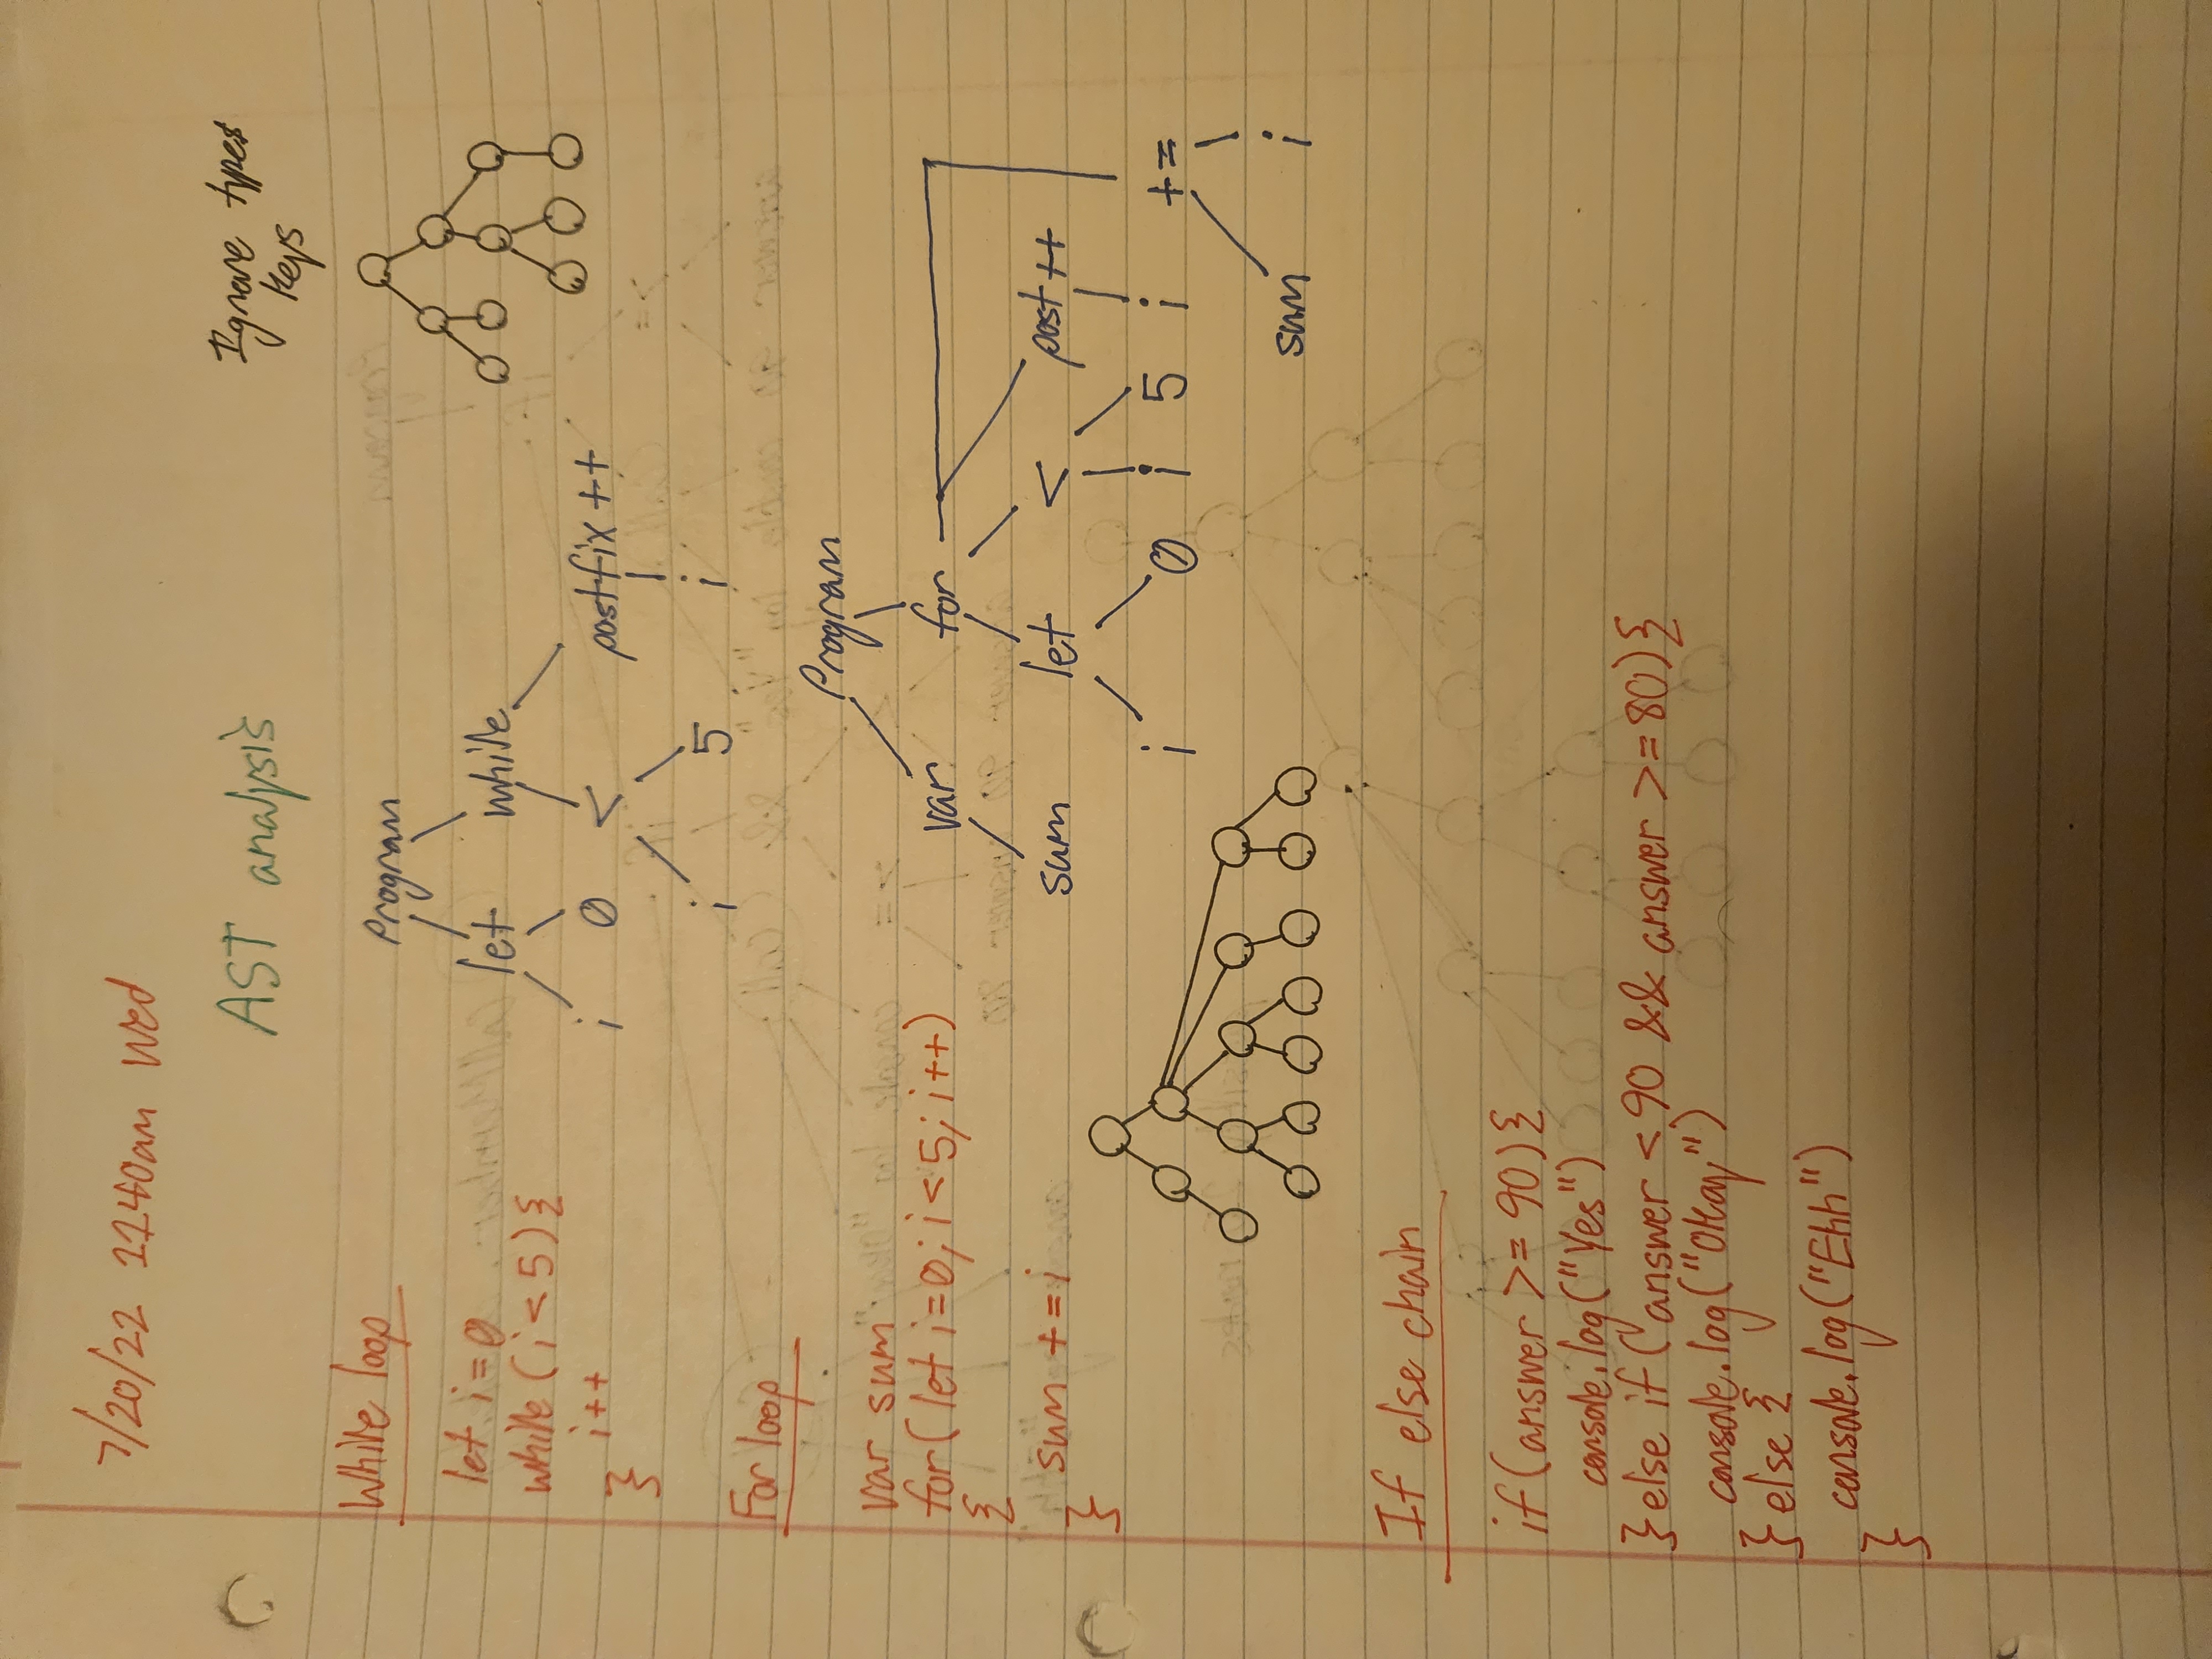 7/20/22 1240am Wed
AST analysis
Ignore types
keys
While loop
let i=0
while (i<5){
i++
}
Program
let while
i 0 < postfix ++
i 5 i
For loop
var sum
for(let i=0; i<5; i++)
{
sum +=i
}
Program
var for
sum let < post ++
i 0 i 5 i +=
sum i
If else chain
if(answer >= 90){
console.log("Yes")
}else if(answer < 90 && answer >= 80){
console.log("Okay")
}else {
console.log("Ehh")
}